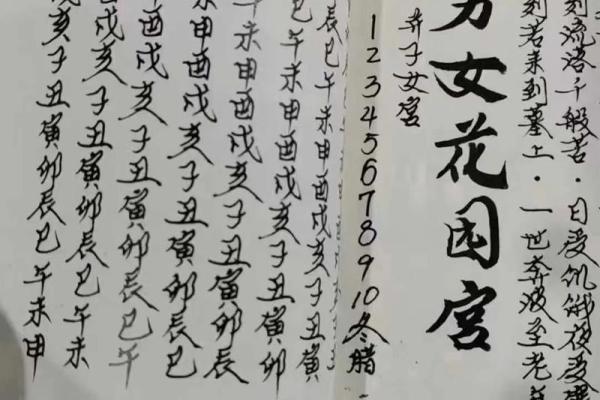 刻流落千般苦·日受饥饿夜受
刻若来到墓上·一世奔波至老
男女花园宫
并子女宫
1 2 3 4 5 6 7 8 9 10 冬腊
辰巳午未申酉戌亥子丑寅
巳午未申酉戌亥子丑寅卯
午未申酉戌亥子丑寅卯辰
未申酉戌亥子丑寅卯辰巳
酉戌亥子丑寅卯辰巳午
戌亥子丑寅卯辰巳午未
亥子丑寅卯辰巳午未申